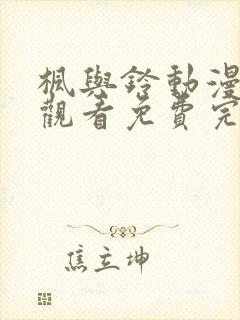 楓與鈴動漫
觀看免費完
焦立坤